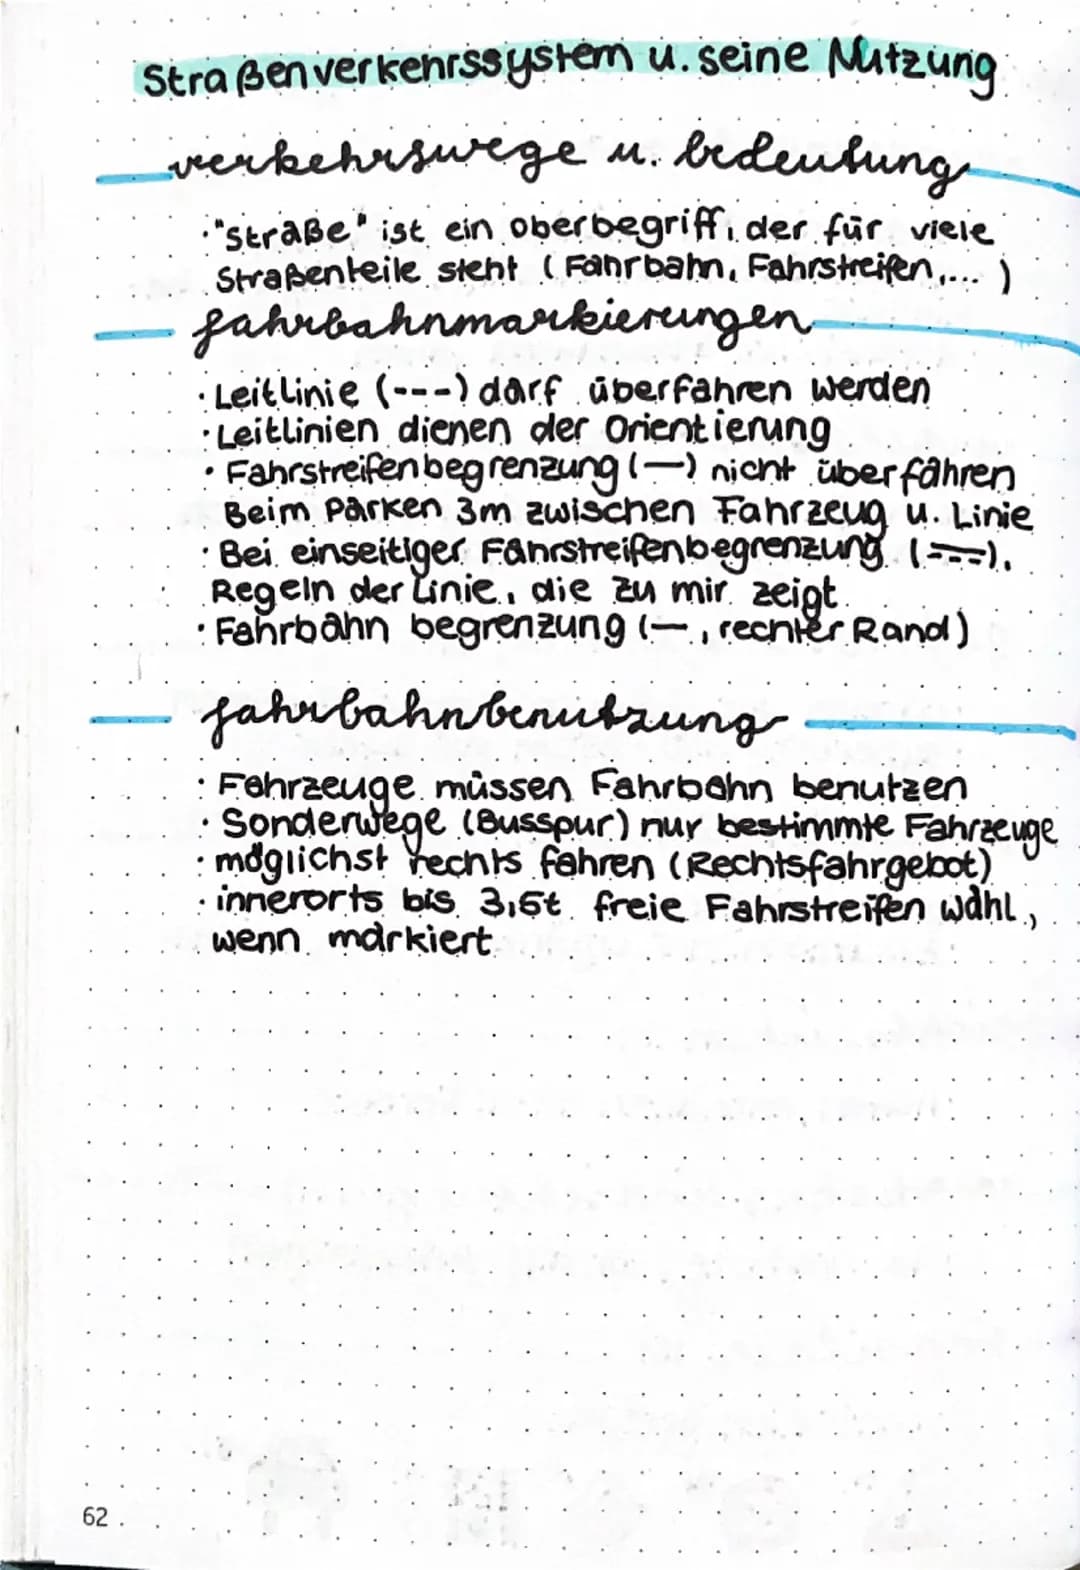 Straßenverkehrssystem u. seine Nutzung
verkehrswege u. bedeutung
· "Straße" ist ein oberbegriff, der für viele
Straßenteile steht (Fahrbahn, Fahrstreifen,... )
fahrbahnmarkierungen
· Leitlinie (---) darf überfahren werden
· Leitlinien dienen der Orientierung
· Fahrstreifenbegrenzung (—) nicht überfahren
Beim Parken 3m zwischen Fahrzeug u. Linie
· Bei einseitiger Fahrstreifenbegrenzung (), 
Regeln der Linie, die zu mir zeigt.
· Fahrbahn begrenzung (—, rechter Rand)
fahrbahnbenutzung
· Fahrzeuge müssen Fahrbahn benutzen
· Sonderwege (Busspur) nur bestimmte Fahrzeuge
· möglichst rechts fahren (Rechtsfahrgebot)
· innerorts bis 3,5t freie Fahrstreifen wahl,
wenn markiert
62